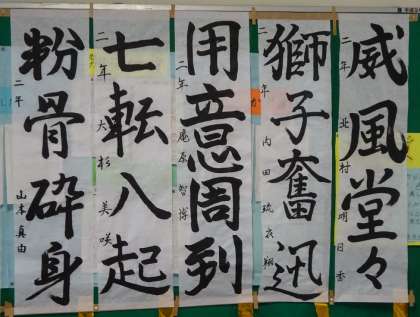 威風堂々
二年 北村明日香
獅子奮迅
二年 内田琉衣翔
用意周到
二年 尾原智博
七転八起
二年 大杉美咲
粉骨砕身
二年 山本真由